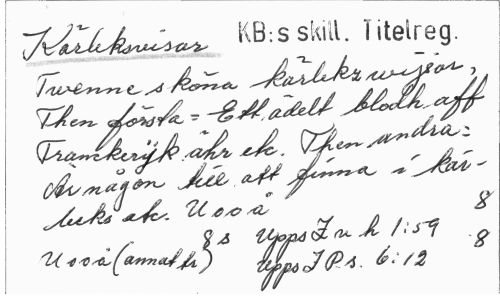 Kärleksvisor KB:s skill. Titelreg.
Twenne sköna kärlekz wijsor,
Then första = Ett ädelt blodh aff
Franckerijk ähr etc. Then andra =
Är någon till att finna i kär-
leks etc. U o o å 8
8 s Upps Z v h 1:59
U o o å (annat tr) Upps Z P.s. 6:12 8